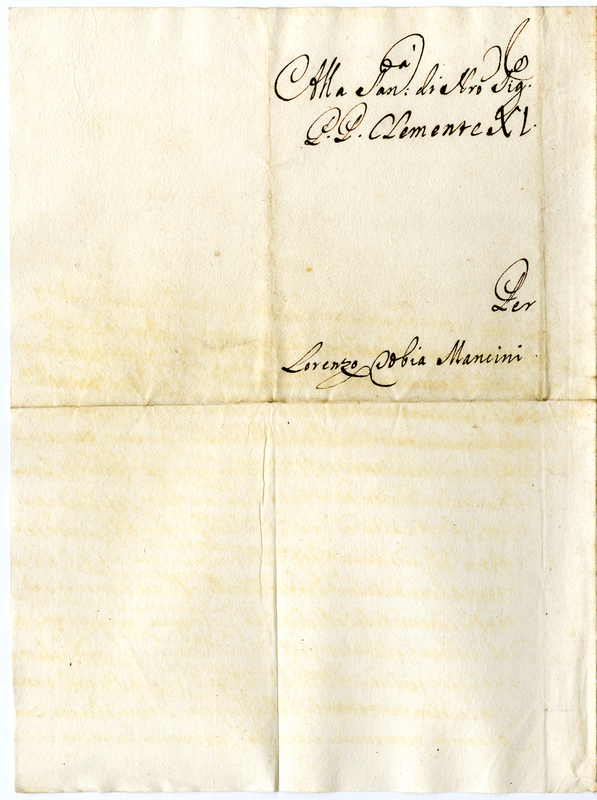 Alla San.tà di Nro Sig.re
P.P. Clemente XI.
Per
Lorenzo Mancini